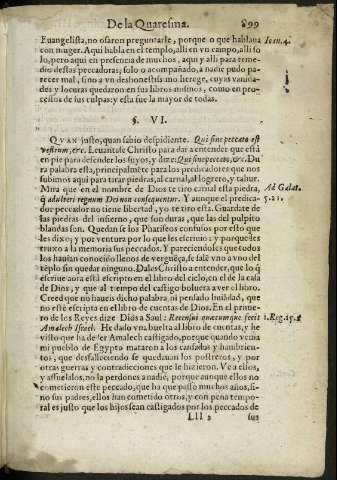 De la Quaresma. 899
Euangelista, no osaren preguntarle, porque o que hablaua
con muger. Aqui habla en el templo, alli en vn campo, alli so
lo, pero aqui en presencia de muchos, aqui y alli para reme-
dio destas peccadoras; solo o acompañado, a nadie pudo pa-
recer mal, sino a vn deshonestissimo herege, cuyas vanida-
des y locuras quedaron en sus libros mismos, como en pro-
cessos de sus culpas: y esta fue la mayor de todas.
Ioan. 4.
§. VI.
QVAN justo, quan sabio despidiente. Qui sine peccato est
vestrum, &c. Leuantase Christo para dar a entender que està
en pie para defender los suyos, y dize: Qui sine peccato, &c. Du
ra palabra esta, principalmẽte para los predicadores que nos
subimos aqui para tirar piedras, al carnal, al logrero, y tahur.
Mira que en el nombre de Dios te tiro carnal esta piedra,
q̃ adulteri regnum Dei non consequentur. Y aunque el predica-
dor peccador no tiene libertad, yo te tiro esta. Guardate de
las piedras del infierno, que son duras, que las del pulpito
blandas son. Quedan se los Phariseos confusos por esto que
les dixo; y por ventura por lo que escriuio: y porque les
truxo a la memoria sus peccados. Y pareciendoles que todos
los hauian conocido llenos de verguẽça, se salẽ vno a vno del
tẽplo sin quedar ninguno. Dales Christo a entender, que lo q̃
escriue aora està escripto en el libro del cielo, ca en el de la casa
de Dios, y que al tiempo del castigo boluera a ver el libro.
Creed que no haueis dicho palabra, ni pensado huildad, que
no estè escripta en el libro de cuentas de Dios. En el prime-
ro de los Reyes dize Dios a Saul: Recensui quaecumque fecit
Amalech Israel. He dado vna buelta al libro de cuentas, y he
visto que ha de ser Amalech castigado, porque quando venia
mi pueblo de Egypto mataron a los cansados y hambrien-
tos, que desfalleciendo se quedauan los postreros, y por
otras guerras y contradicciones que le hizieron. Ve a ellos,
y assuelalos, no la perdones a nadie, porque aunque ellos no
cometieron este peccado, que ha que passò muchos años, si-
no sus padres, ellos han cometido otros, y con pena tempo-
ral es justo que los hijos sean castigados por los peccados de
Ad Galat.
5.21.
1. Reg. 15. 2
Lll 2 sus